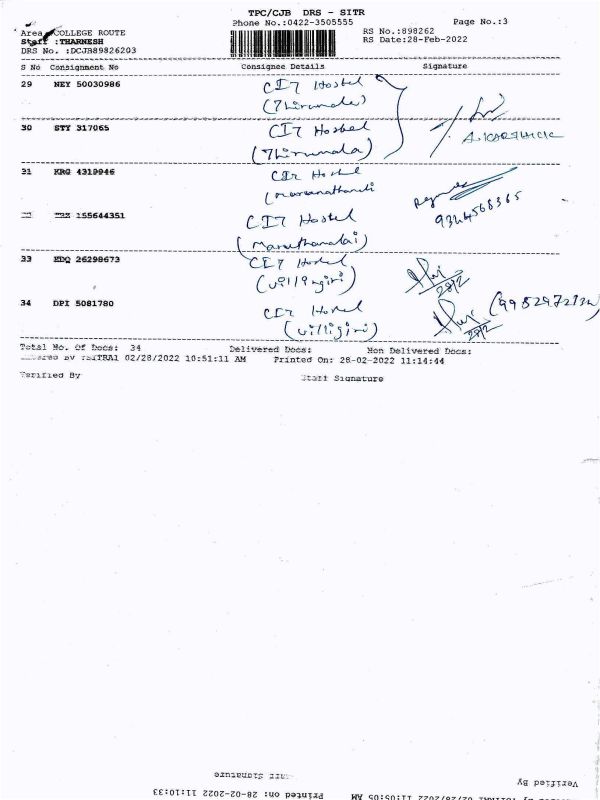 TPC/CJB DRS - SITR
Phone No.:0422-3505555
Page No.:3
Area COLLEGE ROUTE
Staff :THARNESH
DRS No. :DCJB89826203
RS No.:898262
RS Date:28-Feb-2022
S No Consignment No Consignee Details Signature
29 NEY 50030986 CIT Hostel
(Thirumala)
30 STY 317065 CIT Hostel
(Thirumala)
A. KARTHICK
31 KRG 4319946 CIT Hostel
9344568365
155644351 CIT Hostel
(Maruthamalai)
33 EDQ 26298673 CIT Hostel
(villingiri)
28/2
34 DPI 5081780 CIT Hostel
(villigiri)
28/2
Total No. Of Docs: 34 Delivered Docs: Non Delivered Docs:
02/28/2022 10:51:11 AM Printed On: 28-02-2022 11:14:44
Verified By Staff Signature
Signature
Verified By
Printed On: 28-02-2022 11:10:33
02/28/2022 11:05:05 AM